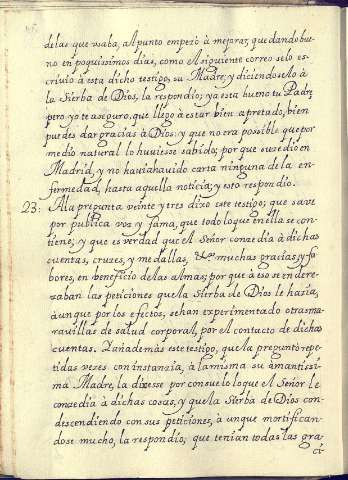 delas que vsaba, Alpunto empezò à mejorar, quedando bue-
no en poquissimos dias, como el siguiente correo selo es-
crivio à esta dicho testigo, su Madre; y diciendoselo à
la Sierba de Dios, la respondió; ya esta bueno tu Padre
pero yo te aseguro, que llegó à estar bien apretado, bien
puedes dar gracias à Dios. y que no era possible que por
medio natural lo huviesse sabido; porque sucedio en
Madrid, y no havia havido carta ninguna de la en-
fermedad, hasta aquella noticia; y esto respondio.
23: Ala pregunta veinte y tres dixo este testigo; que save
por publica voz y fama, que todo lo que en ella se con-
tiene; y que es verdad que el Señor conzedia à dichas
cuentas, cruzes, y medallas, &c. muchas gracias y fa-
bores, en beneficio de las Almas; por que à eso se endere-
zaban las peticiones que la Sierba de Dios le hazia,
aunque por los efectos, se han experimentado otras ma-
ravillas de salud corporal, por el contacto de dichas
cuentas. Y añade mas este testigo, que la preguntò repe-
tidas vezes con instanzia, à la misma su amantissi-
ma Madre, la dixesse por consuelo lo que el Señor le
conzedia à dichas cosas, y que la Sierba de Dios con-
descendiendo con sus peticiones, à unque mortifican-
dose mucho, la respondio; que tenian todas las gra-
ci